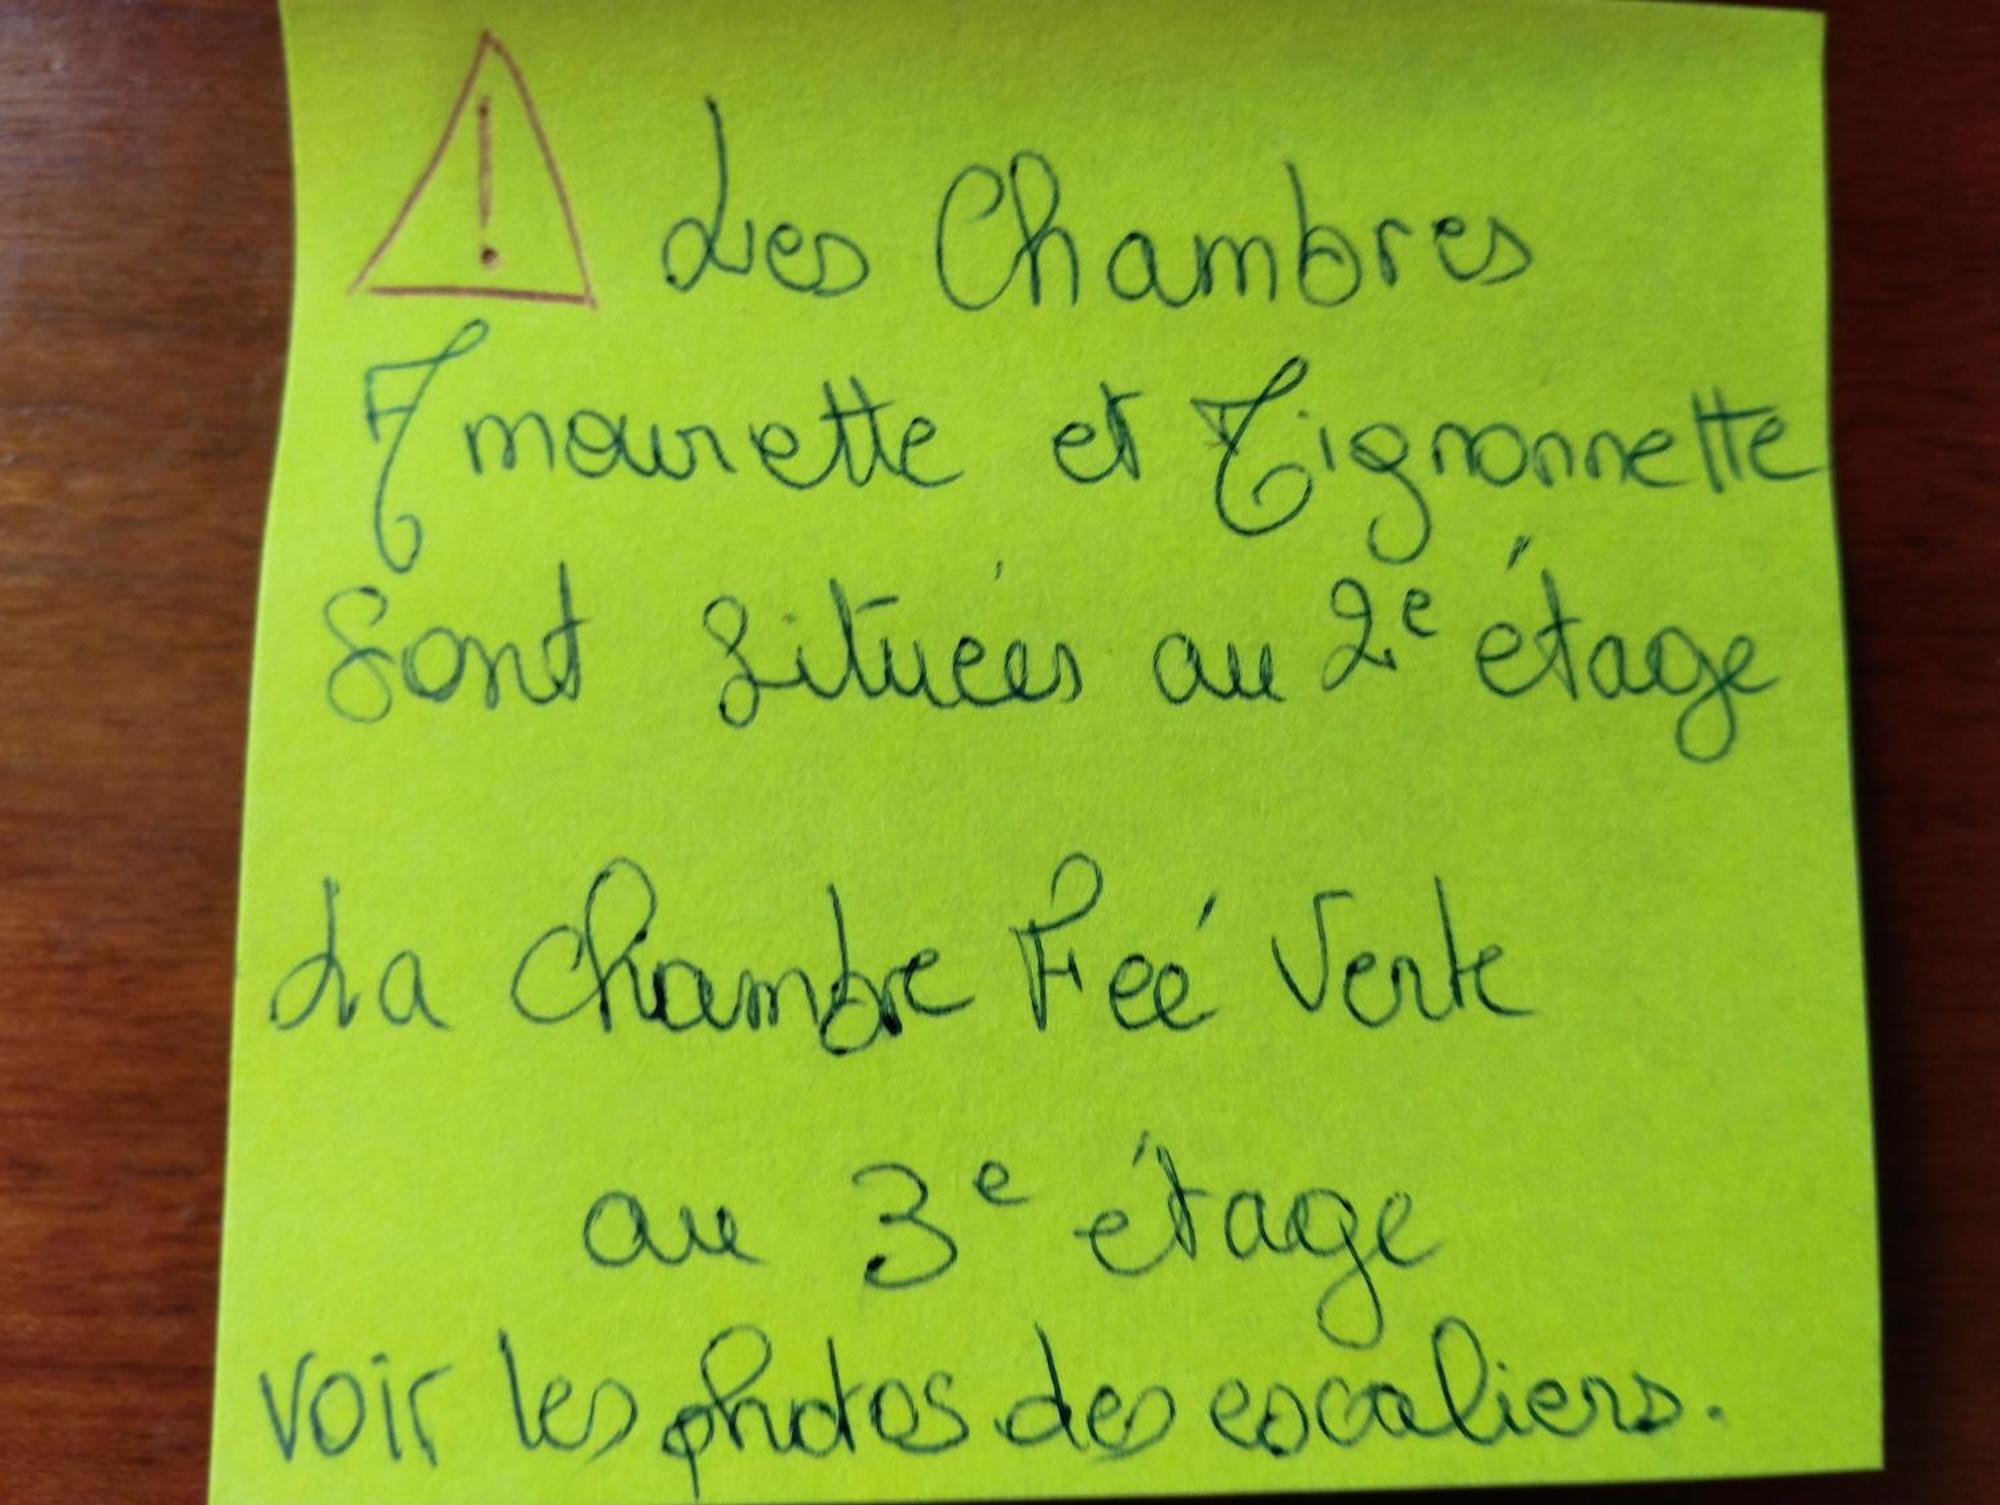 ! Les Chambres
Amourette et Tignonnette
Sont Situées au 2e étage
La Chambre Feé Verte
au 3e étage
voir les photos des escaliers.